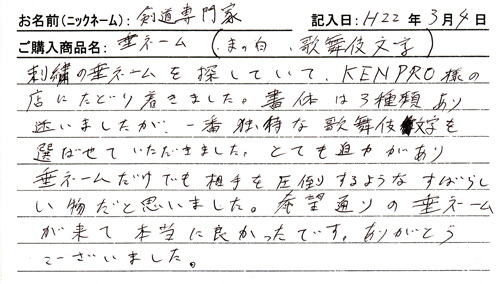 お名前(ニックネーム): 剣道専門家 記入日: H22 年 3月 4日
ご購入商品名: 垂ネーム (まっ白、歌舞伎文字)
刺繍の垂ネームを探していて、KENPRO様の
店にたどり着きました。書体は3種類あり
迷いましたが、一番独特な歌舞伎文字を
選ばせていただきました。とても迫力があり
垂ネームだけでも相手を圧倒するようなすばらし
い物だと思いました。希望通りの垂ネーム
が来て本当に良かったです。ありがとう
ございました。